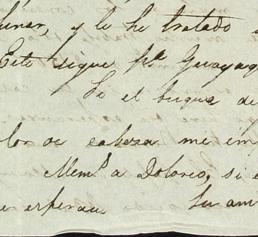 lunar, y le he tratado
Este sigue pa. Guayaq
Si el buque de
lor de cabeza me im
Mem.s a Dolores, si e
esperan Tu am